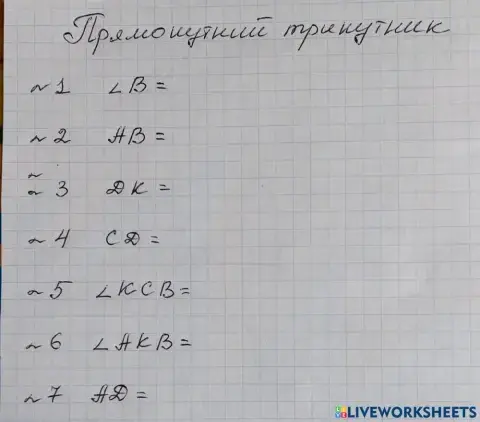 Прямокутний трикутник
~ 1 ∠B =
~ 2 AB =
~ 3 DK =
~ 4 CD =
~ 5 ∠KCB =
~ 6 ∠AKB =
~ 7 AD =
LIVEWORKSHEETS